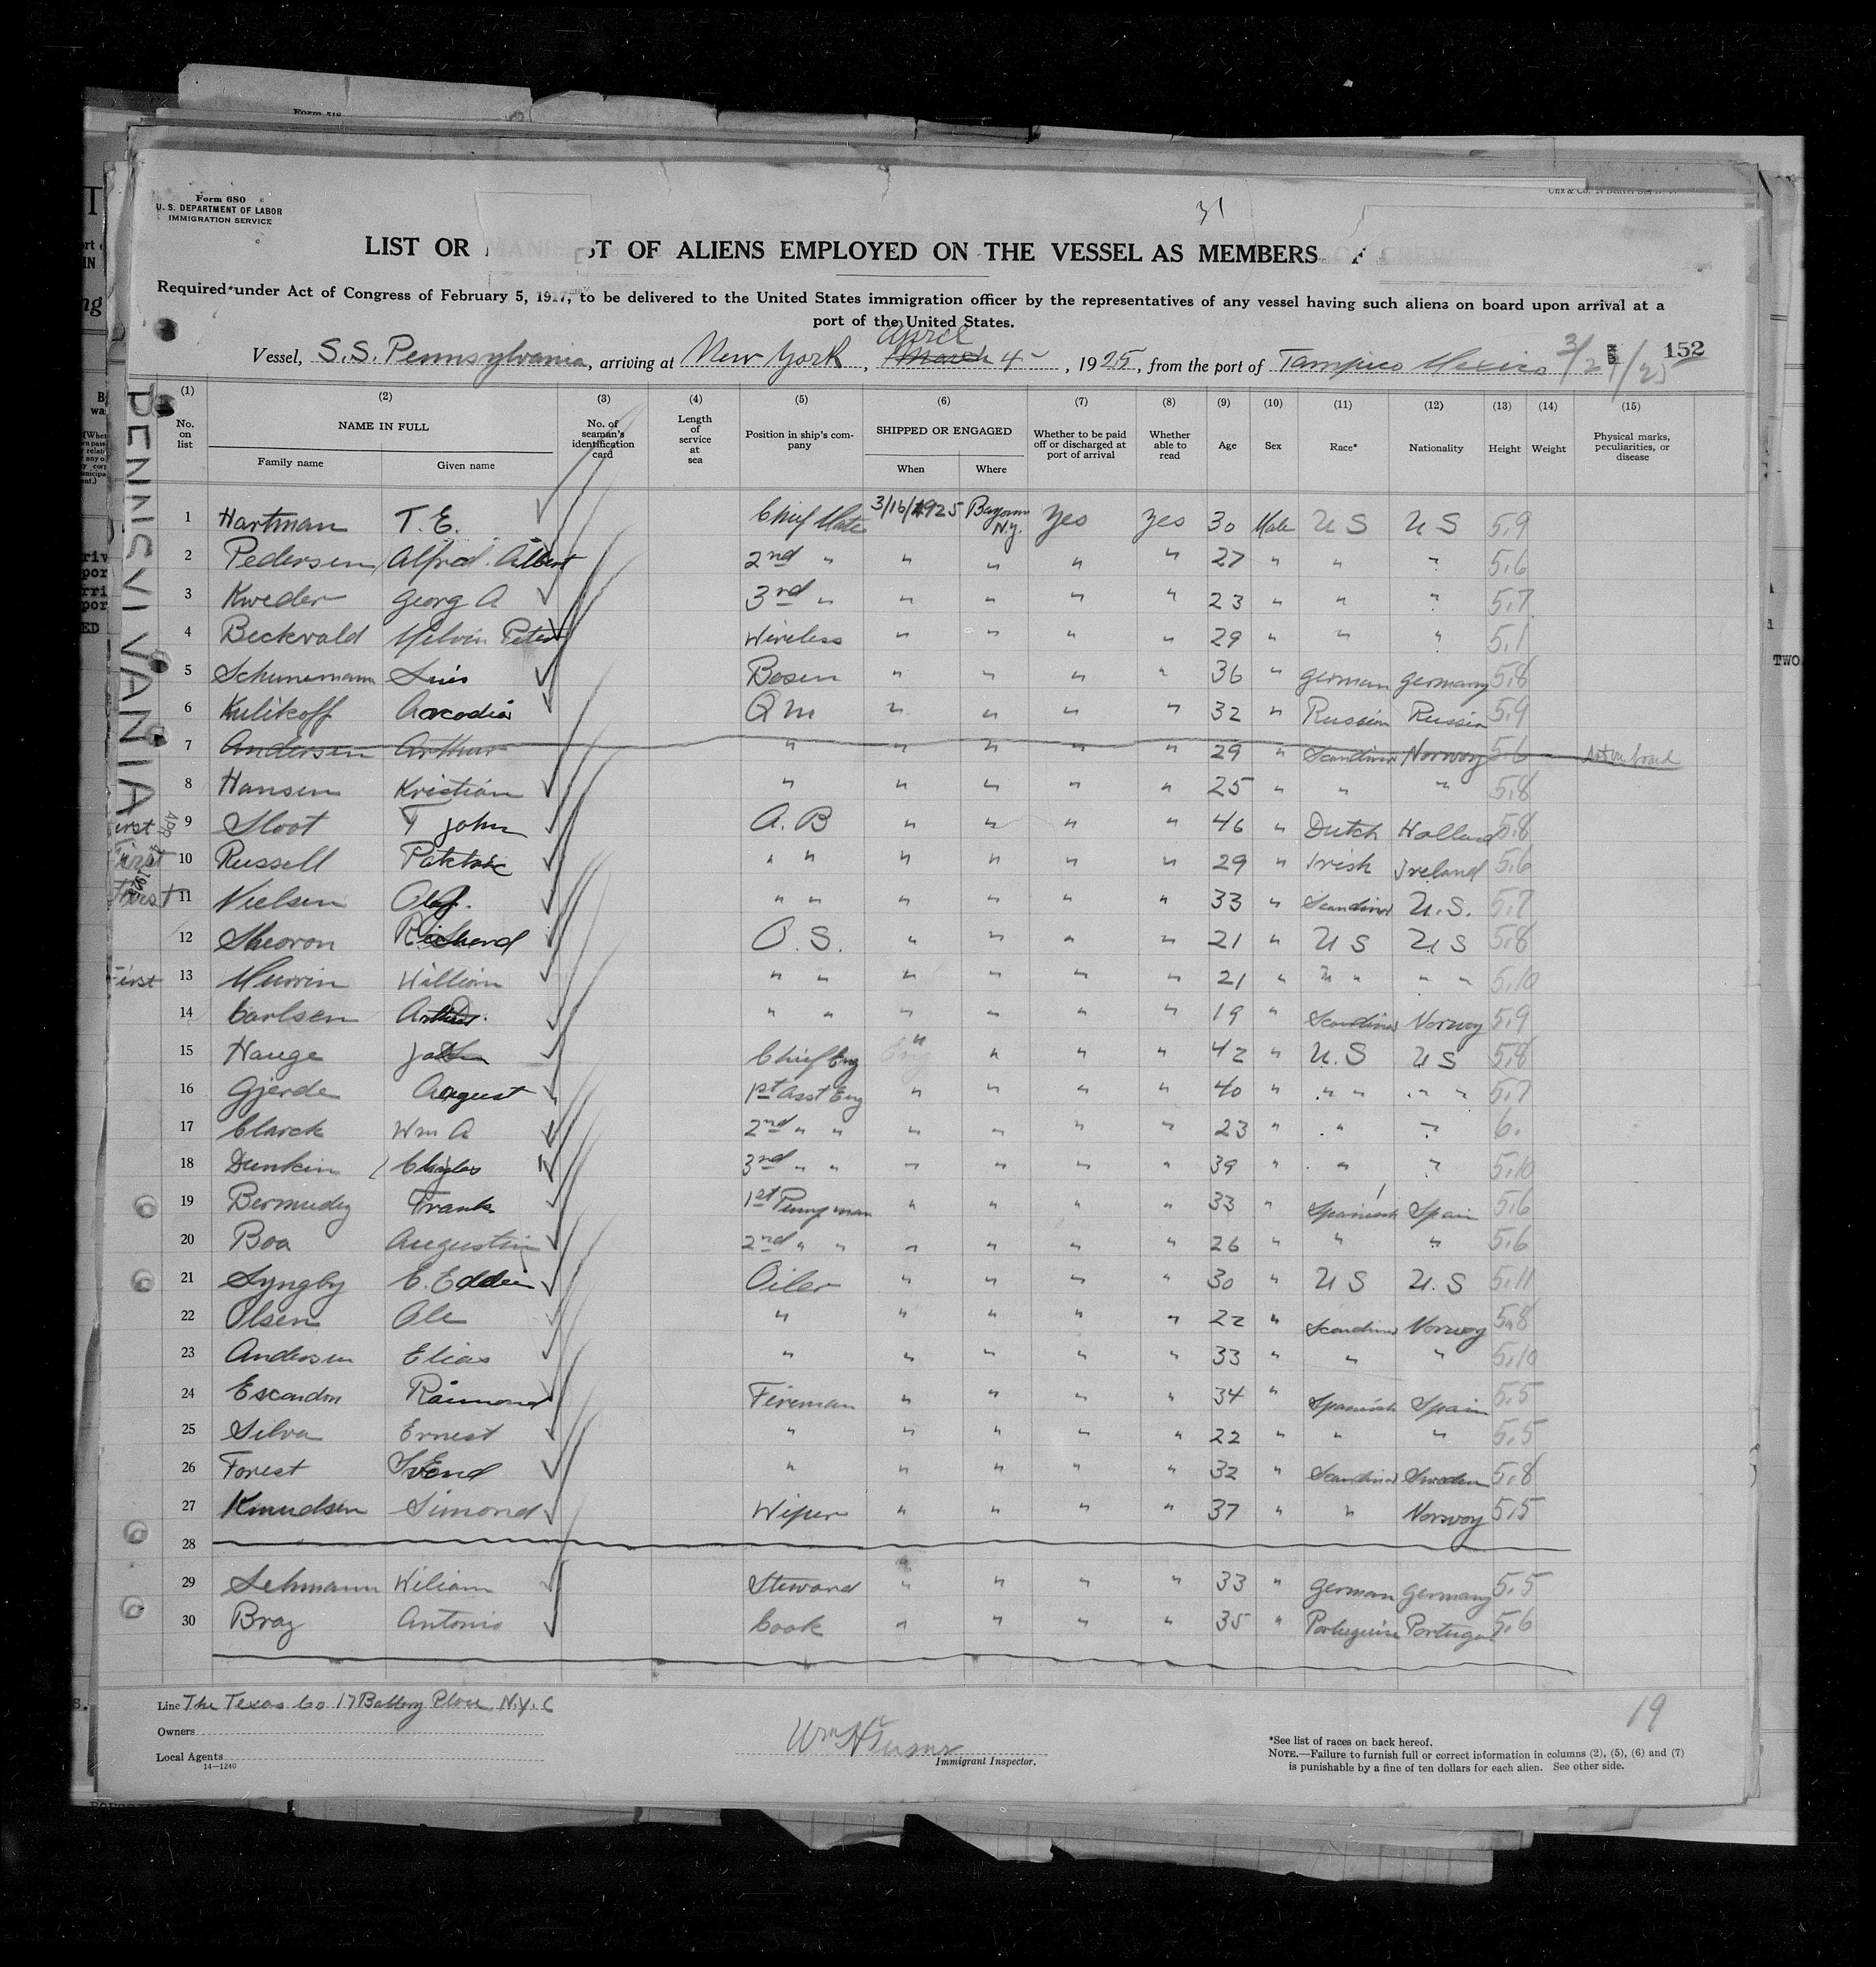 Form 680
U. S. DEPARTMENT OF LABOR
IMMIGRATION SERVICE
31
LIST OR ST OF ALIENS EMPLOYED ON THE VESSEL AS MEMBERS
Required under Act of Congress of February 5, 1917, to be delivered to the United States immigration officer by the representatives of any vessel having such aliens on board upon arrival at a
port of the United States.
April
Vessel, S.S. Pennsylvania, arriving at New York, March 4, 1925, from the port of Tampico Mexico 3/2 /25 152
PENNSYLVANIA
(1) (2) (3) (4) (5) (6) (7) (8) (9) (10) (11) (12) (13) (14) (15)
No. on list NAME IN FULL No. of seaman's identification card Length of service at sea Position in ship's company SHIPPED OR ENGAGED Whether to be paid off or discharged at port of arrival Whether able to read Age Sex Race* Nationality Height Weight Physical marks, peculiarities, or disease
Family name Given name When Where
1 Hartman T. E. Chief Mate 3/16/1925 Bayonne N.J. Yes Yes 30 Male U S U S 5,9
2 Pedersen Alfred Albert 2nd " " " " " 27 " " " 5,6
3 Kweder Georg A 3rd " " " " " 23 " " " 5,7
4 Beckvald Melvin Peter Wireless " " " " 29 " " " 5,1
5 Schunemann Luis Bosen " " " " 36 " German Germany 5,8
6 Kulikoff Arcadia Q m " " " " 32 " Russian Russia 5,9
7 Andersen Arthur " " " " " 29 " Scandinav Norway 5,6 Not on board
8 Hansen Kristian " " " " " 25 " " " 5,8
First 9 Sloot T John A. B " " " " 46 " Dutch Holland 5,8
First 10 Russell Patrick " " " " " " 29 " Irish Ireland 5,6
First 11 Nielsen Olaf. " " " " " " 33 " Scandinav U.S. 5,7
12 Sheoron Richard O. S. " " " " 21 " U S U S 5,8
First 13 Murrin William " " " " " " 21 " " " " " 5,10
14 Carlsen Arthur. " " " " " " 19 " Scandinav Norway 5,9
15 Hauge John Chief Eng " " " " 42 " U.S U S 5,8
16 Gjerde August 1st Asst Eng " " " " 40 " " " " " 5,7
17 Clarck Wm A 2nd " " " " " " 23 " " " 6.
18 Dunkin Charles 3rd " " " " " " 39 " " " 5,10
19 Bermudez Frank 1st Pump man " " " " 33 " Spanish Spain 5,6
20 Boa Augustin 2nd " " " " " " 26 " " " 5,6
21 Lyngby E. Eddie Oiler " " " " 30 " U S U.S 5,11
22 Olsen Ole " " " " " 22 " Scandinav Norway 5,8
23 Andersen Elias " " " " " 33 " " " 5,10
24 Escandon Raimond Fireman " " " " 34 " Spanish Spain 5,5
25 Silva Ernest " " " " " 22 " " " 5,5
26 Forest Svend " " " " " 32 " Scandinav Sweden 5,8
27 Knudsen Simond Wiper " " " " 37 " " Norway 5,5
28
29 Lehmann Wiliam Steward " " " " 33 " German Germany 5,5
30 Braz Antonio Cook " " " " 35 " Portuguise Portugal 5,6
Line The Texas Co 17 Battery Place N.Y.C
Owners
Local Agents
14—1240
Wm H Turner
Immigrant Inspector.
19
*See list of races on back hereof.
NOTE.—Failure to furnish full or correct information in columns (2), (5), (6) and (7)
is punishable by a fine of ten dollars for each alien. See other side.